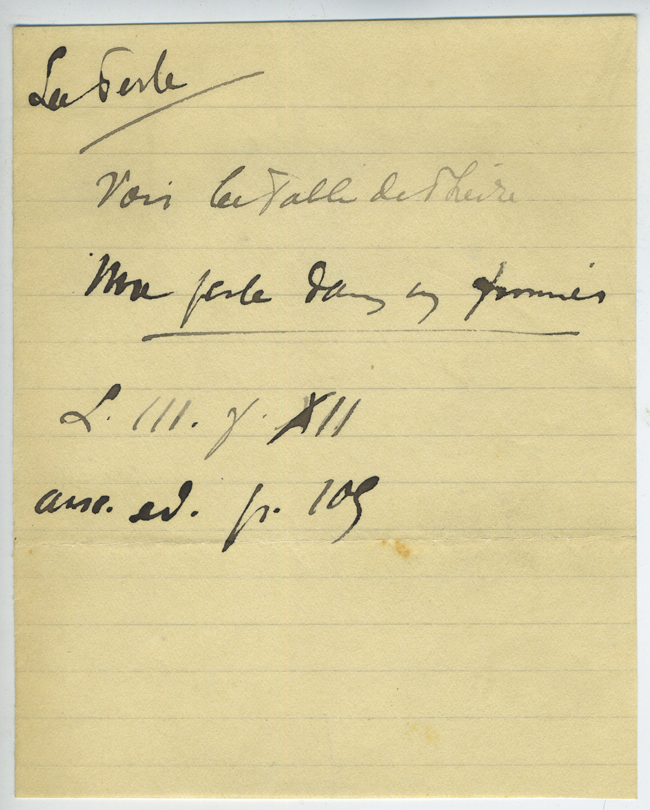 La Perle
Voir la Fable de Phèdre
Une perle dans un fumier
L. III. f. XII
anc. ed. p. 109